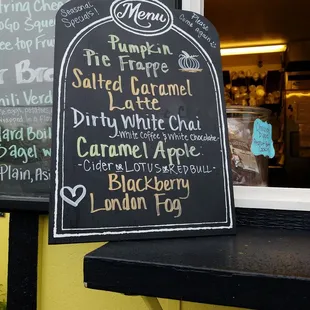 Seasonal
Specials!
Menu
Please
come again!
Pumpkin
Pie Frappe
Salted Caramel
Latte
Dirty White Chai
White Coffee & White Chocolate
Caramel Apple
-Cider OR LOTUS OR REDBULL-
Blackberry
London Fog
String Chee
GoGo Squee
ee top Frui
r Br
hili Verd
ard Boil
agel w
Plain, As